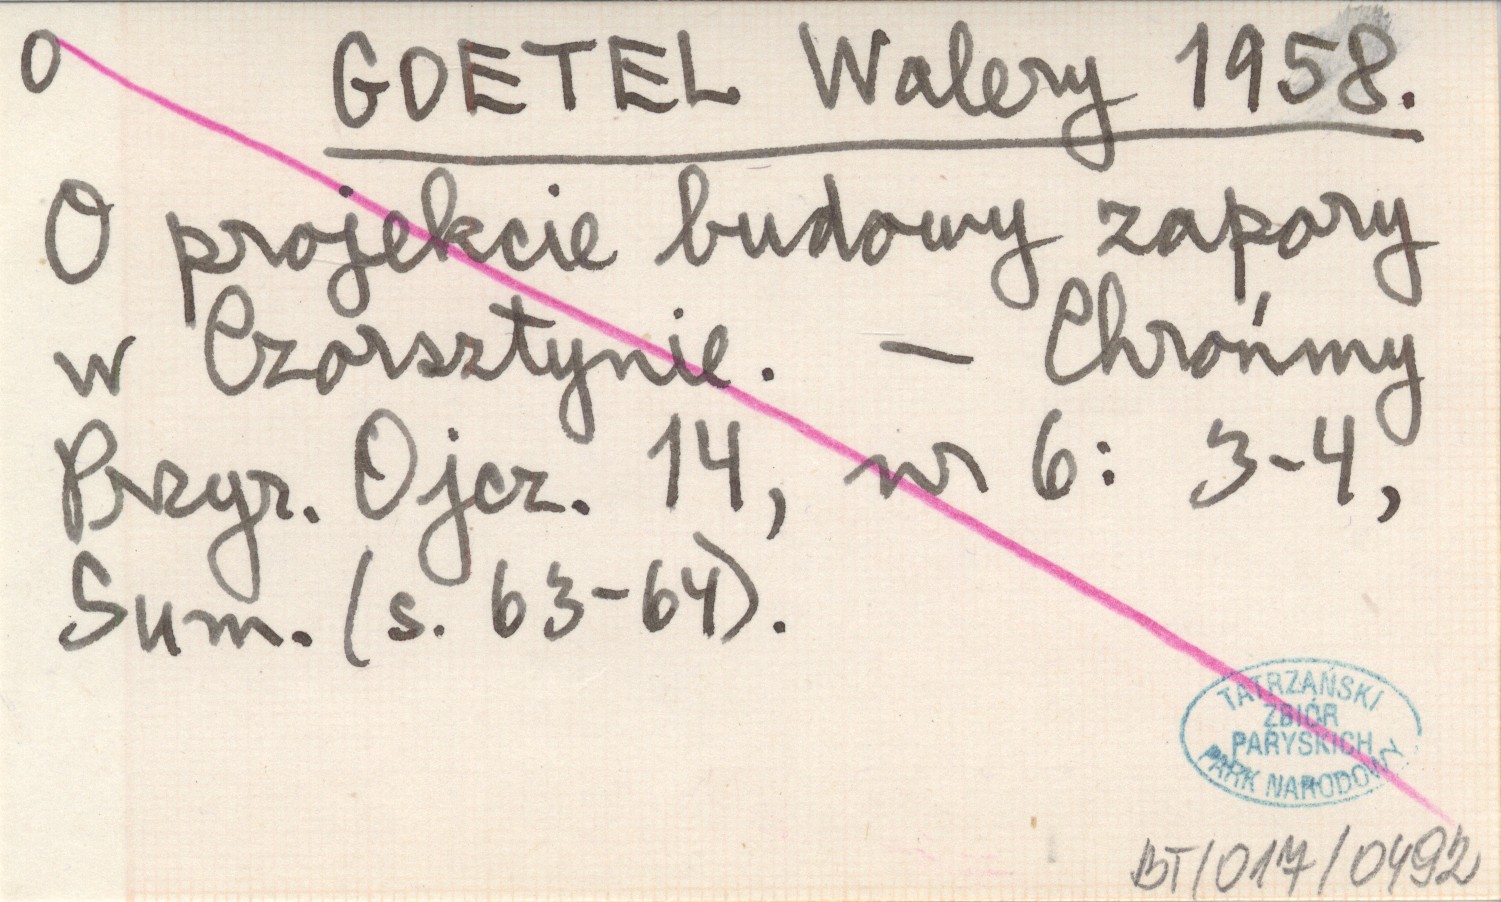 O GOETEL Walery 1958.
O projekcie budowy zapory
w Czorsztynie. – Chrońmy
Przyr. Ojcz. 14, nr 6: 3-4,
Sum. (s. 63-64).
TATRZAŃSKI
ZBIÓR
PARYSKICH
PARK NARODOWY
BT/017/0492